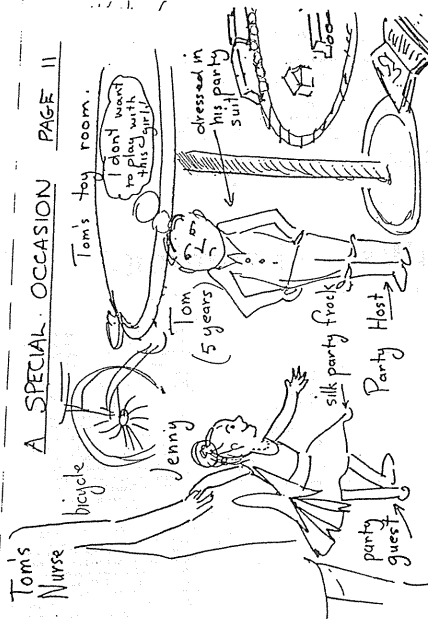 A SPECIAL OCCASION PAGE 11
Tom's toy room.
I don't want
to play with
this girl!
dressed in
his party
suit
Tom
(5 years)
bicycle
Tom's
Nurse
Jenny
silk party frock
Party Host
party
guest